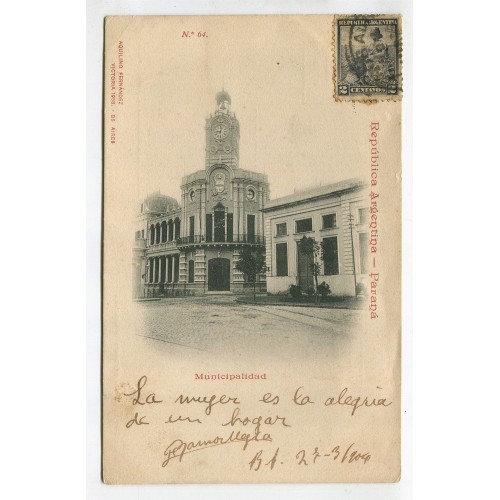 N.º 64.
REPÚBLICA ARGENTINA
2 CENTAVOS 2
AQUILINO FERNÁNDEZ
VICTORIA 1902 - BS AIRES
República Argentina — Paraná
Municipalidad
La mujer es la alegria
de un hogar
27-3/904